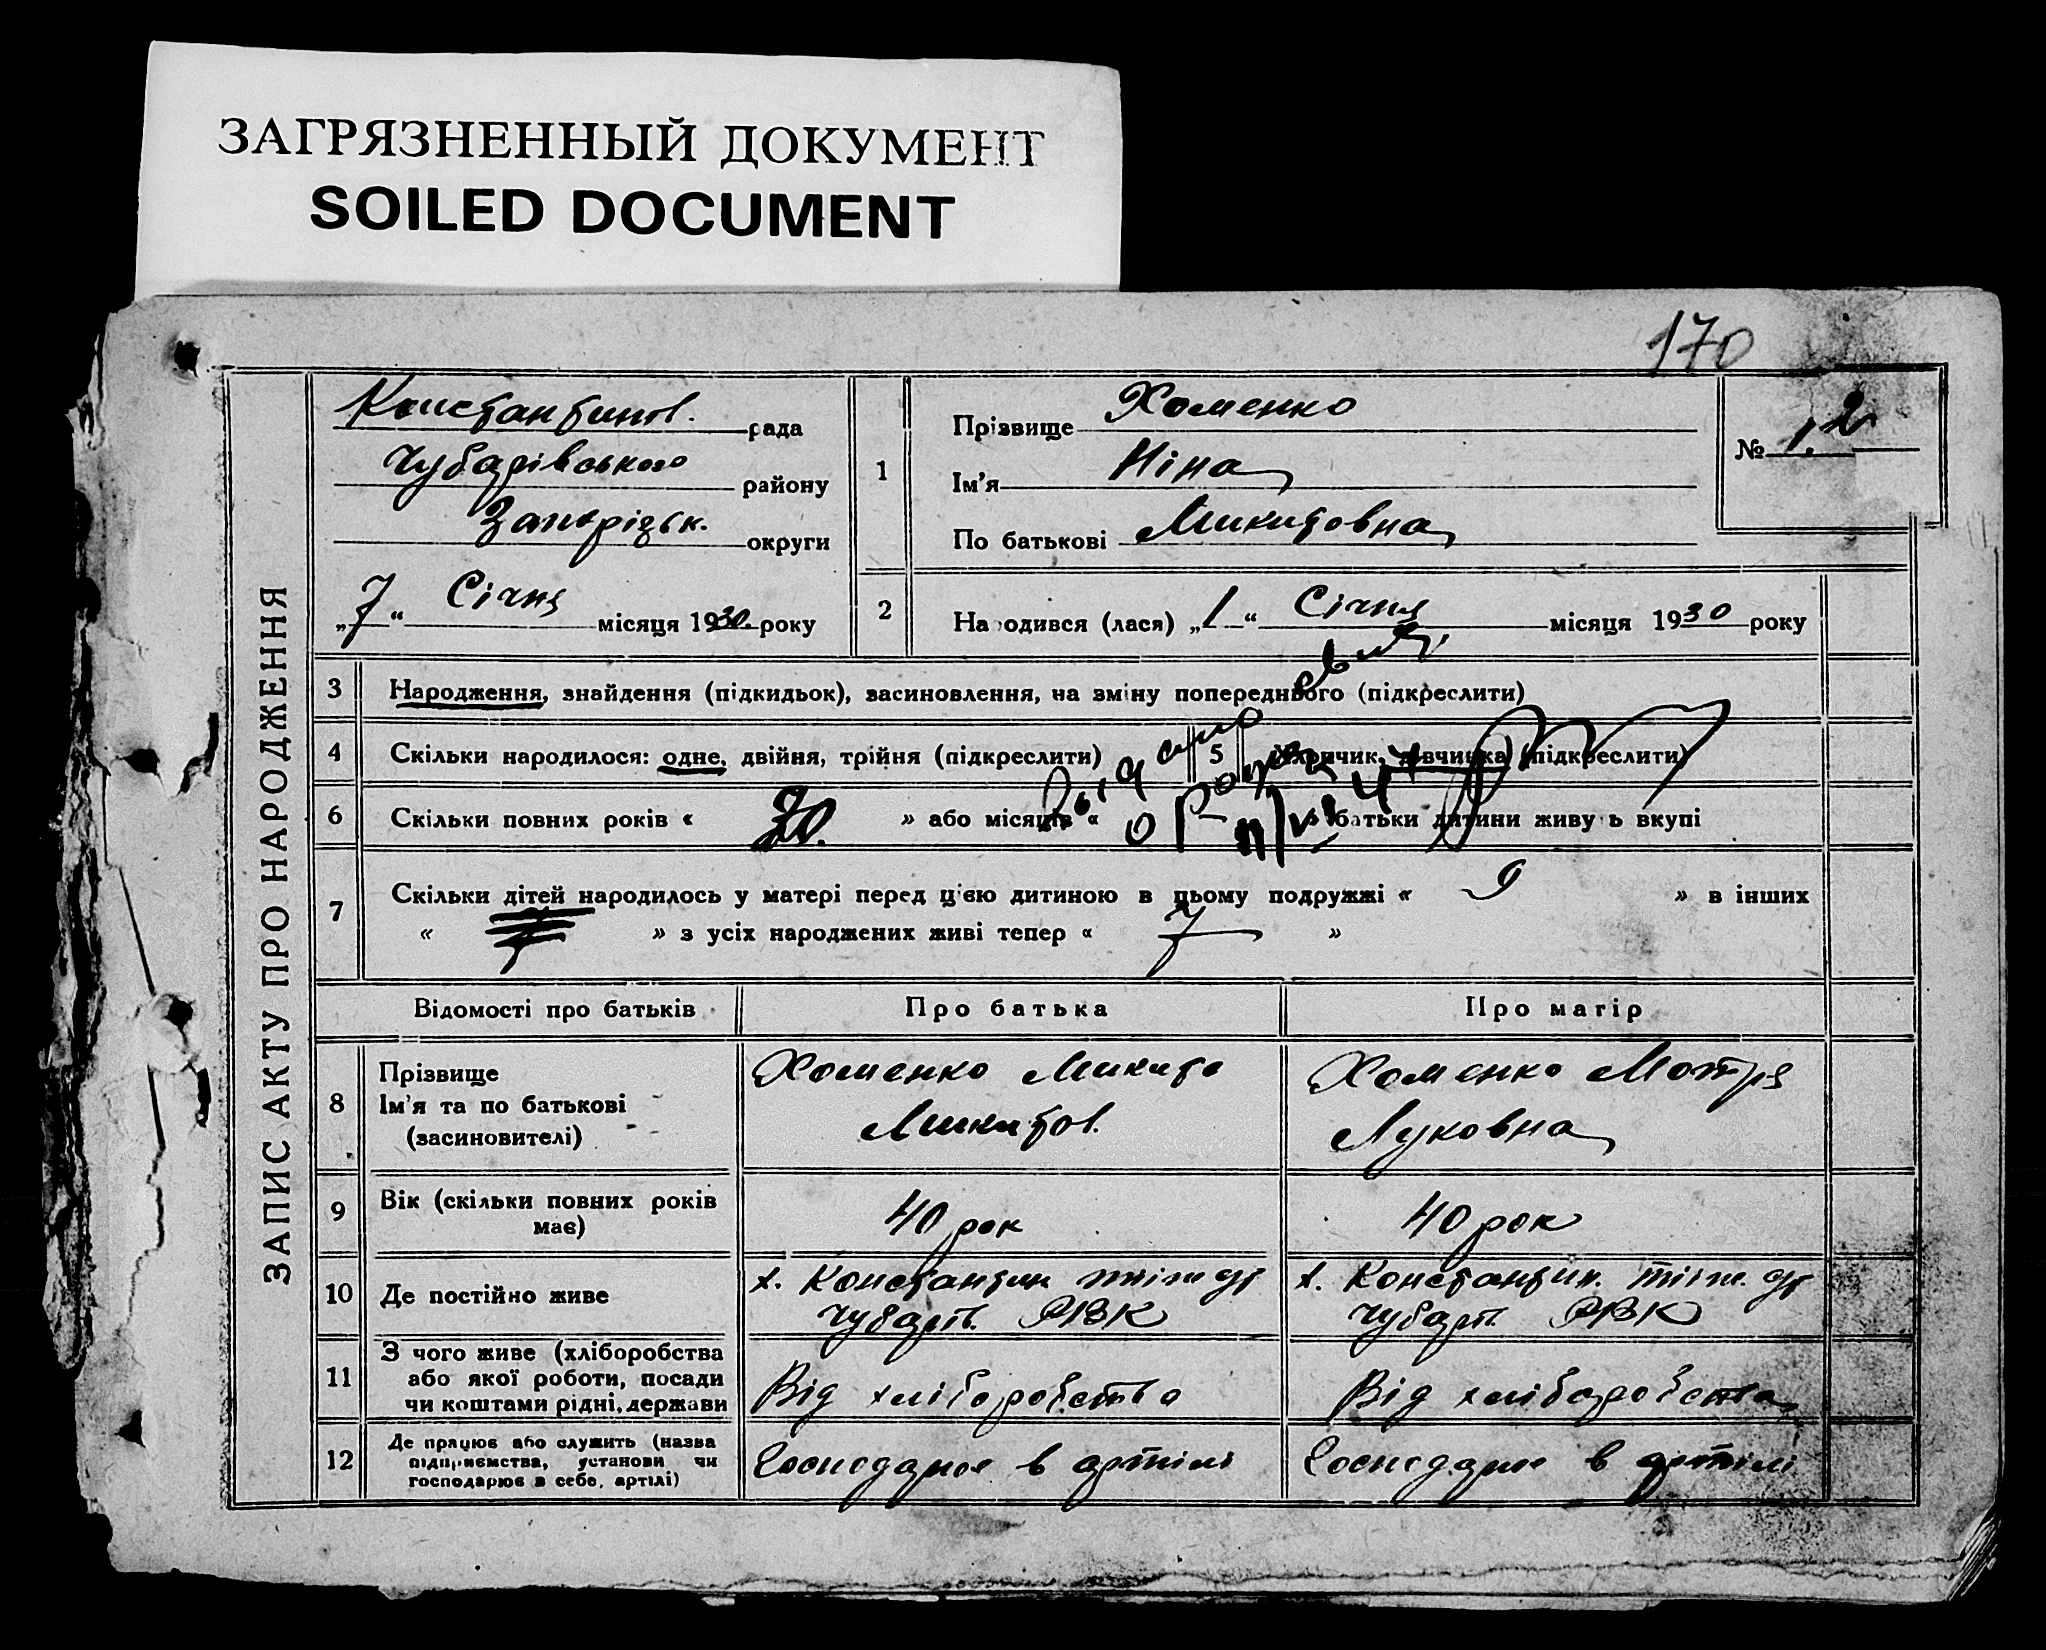 ЗАГРЯЗНЕННЫЙ ДОКУМЕНТ
SOILED DOCUMENT
170
ЗАПИС АКТУ ПРО НАРОДЖЕННЯ
Константинов. рада
Чубарівського району
Запорізьк. округи
„7“ Січня місяця 1930. року
1
Прізвище Хоменко
Ім'я Ніна
По батькові Микитовна
№ 1. 2
2
Народився (лася) „1“ Січня місяця 1930 року
3 Народження, знайдення (підкидьок), засиновлення, на зміну попереднього (підкреслити)
4 Скільки народилося: одне, двійня, трійня (підкреслити) 5 Хлопчик, дівчинка (підкреслити)
6 Скільки повних років « 20. » або місяців « » батьки дитини живуть вкупі
7 Скільки дітей народилось у матері перед цією дитиною в цьому подружжі « 9 » в інших
« » з усіх народжених живі тепер « 7 »
Відомості про батьків Про батька Про матір
8 Прізвище Ім'я та по батькові (засиновителі)
Хоменко Микита Микитов.
Хоменко Мотря Луковна
9 Вік (скільки повних років має) 40 рок 40 рок
10 Де постійно живе
х. Константин Чубарів. РВК
х. Константин. Чубарів. РВК
11 З чого живе (хліборобства або якої роботи, посади чи коштами рідні, держави
Від хліборобства Від хліборобства
12 Де працює або служить (назва підприємства, установи чи господарює в себе, артілі)
Господарює в артілі Господарює в артілі